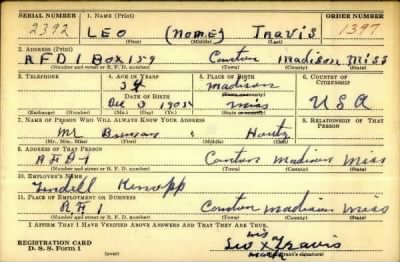 SERIAL NUMBER 1. NAME (Print) ORDER NUMBER
2392 LEO (NONE) Travis 1397
(First) (Middle) (Last)
2. ADDRESS (Print)
RFD 1 Box 159 Canton Madison Miss
(Number and street or R. F. D. number) (Town) (County) (State)
3. TELEPHONE 4. AGE IN YEARS 5. PLACE OF BIRTH 6. COUNTRY OF CITIZENSHIP
34 Madison
DATE OF BIRTH (Town or county)
Dec 3 1905 Miss USA
(Exchange) (Number) (Mo.) (Day) (Yr.) (State or country)
7. NAME OF PERSON WHO WILL ALWAYS KNOW YOUR ADDRESS 8. RELATIONSHIP OF THAT PERSON
Mr
(Mr., Mrs., Miss) (First) (Middle) (Last)
9. ADDRESS OF THAT PERSON
RFD 1 Canton Madison Miss
(Number and street or R. F. D. number) (Town) (County) (State)
10. EMPLOYER'S NAME
11. PLACE OF EMPLOYMENT OR BUSINESS
Canton Madison Miss
(Number and street or R. F. D. number) (Town) (County) (State)
I AFFIRM THAT I HAVE VERIFIED ABOVE ANSWERS AND THAT THEY ARE TRUE.
his
REGISTRATION CARD Leo x Travis
D. S. S. Form 1 (over) mark (Registrant's signature)